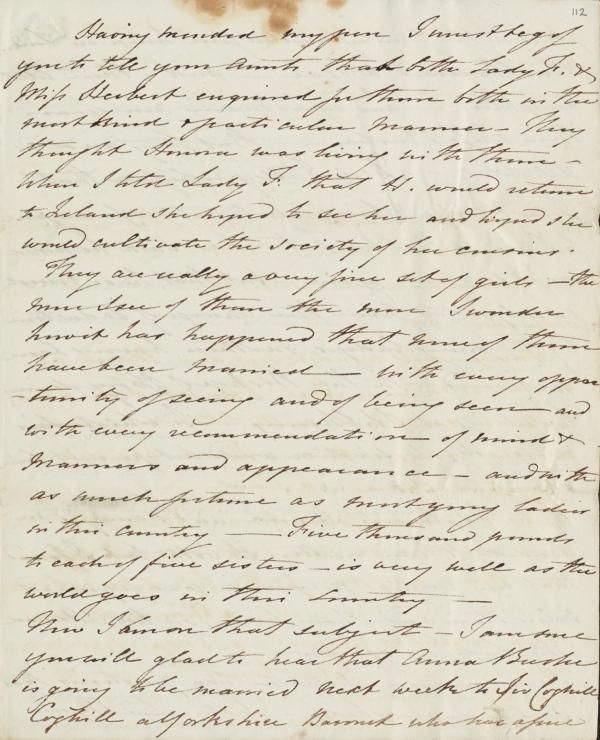 112
Having mended my pen I must beg of
you to tell your Aunts that both Lady F. &
Miss Herbert enquired for them both in the
most kind & particular manner – They
thought Honora was living with them –
When I told Lady F. that H. would return
to Ireland she hoped to see her and hoped she
would cultivate the society of her cousins.
They are really a very fine set of girls – the
more I see of them the more I wonder
how it has happened that none of them
have been married – with every oppor
-tunity of seeing and of being seen – and
with every recommendation of mind &
manners and appearance – and with
as much fortune as most young ladies
in this country – Five thousand pounds
to each of five sisters – is very well as the
world goes in this country –
Now I am on that subject – I am sure
you will glad to hear that Anna Bushe
is going to be married next week to Sir Coghill
Coghill a Yorkshire Baronet who has a fine